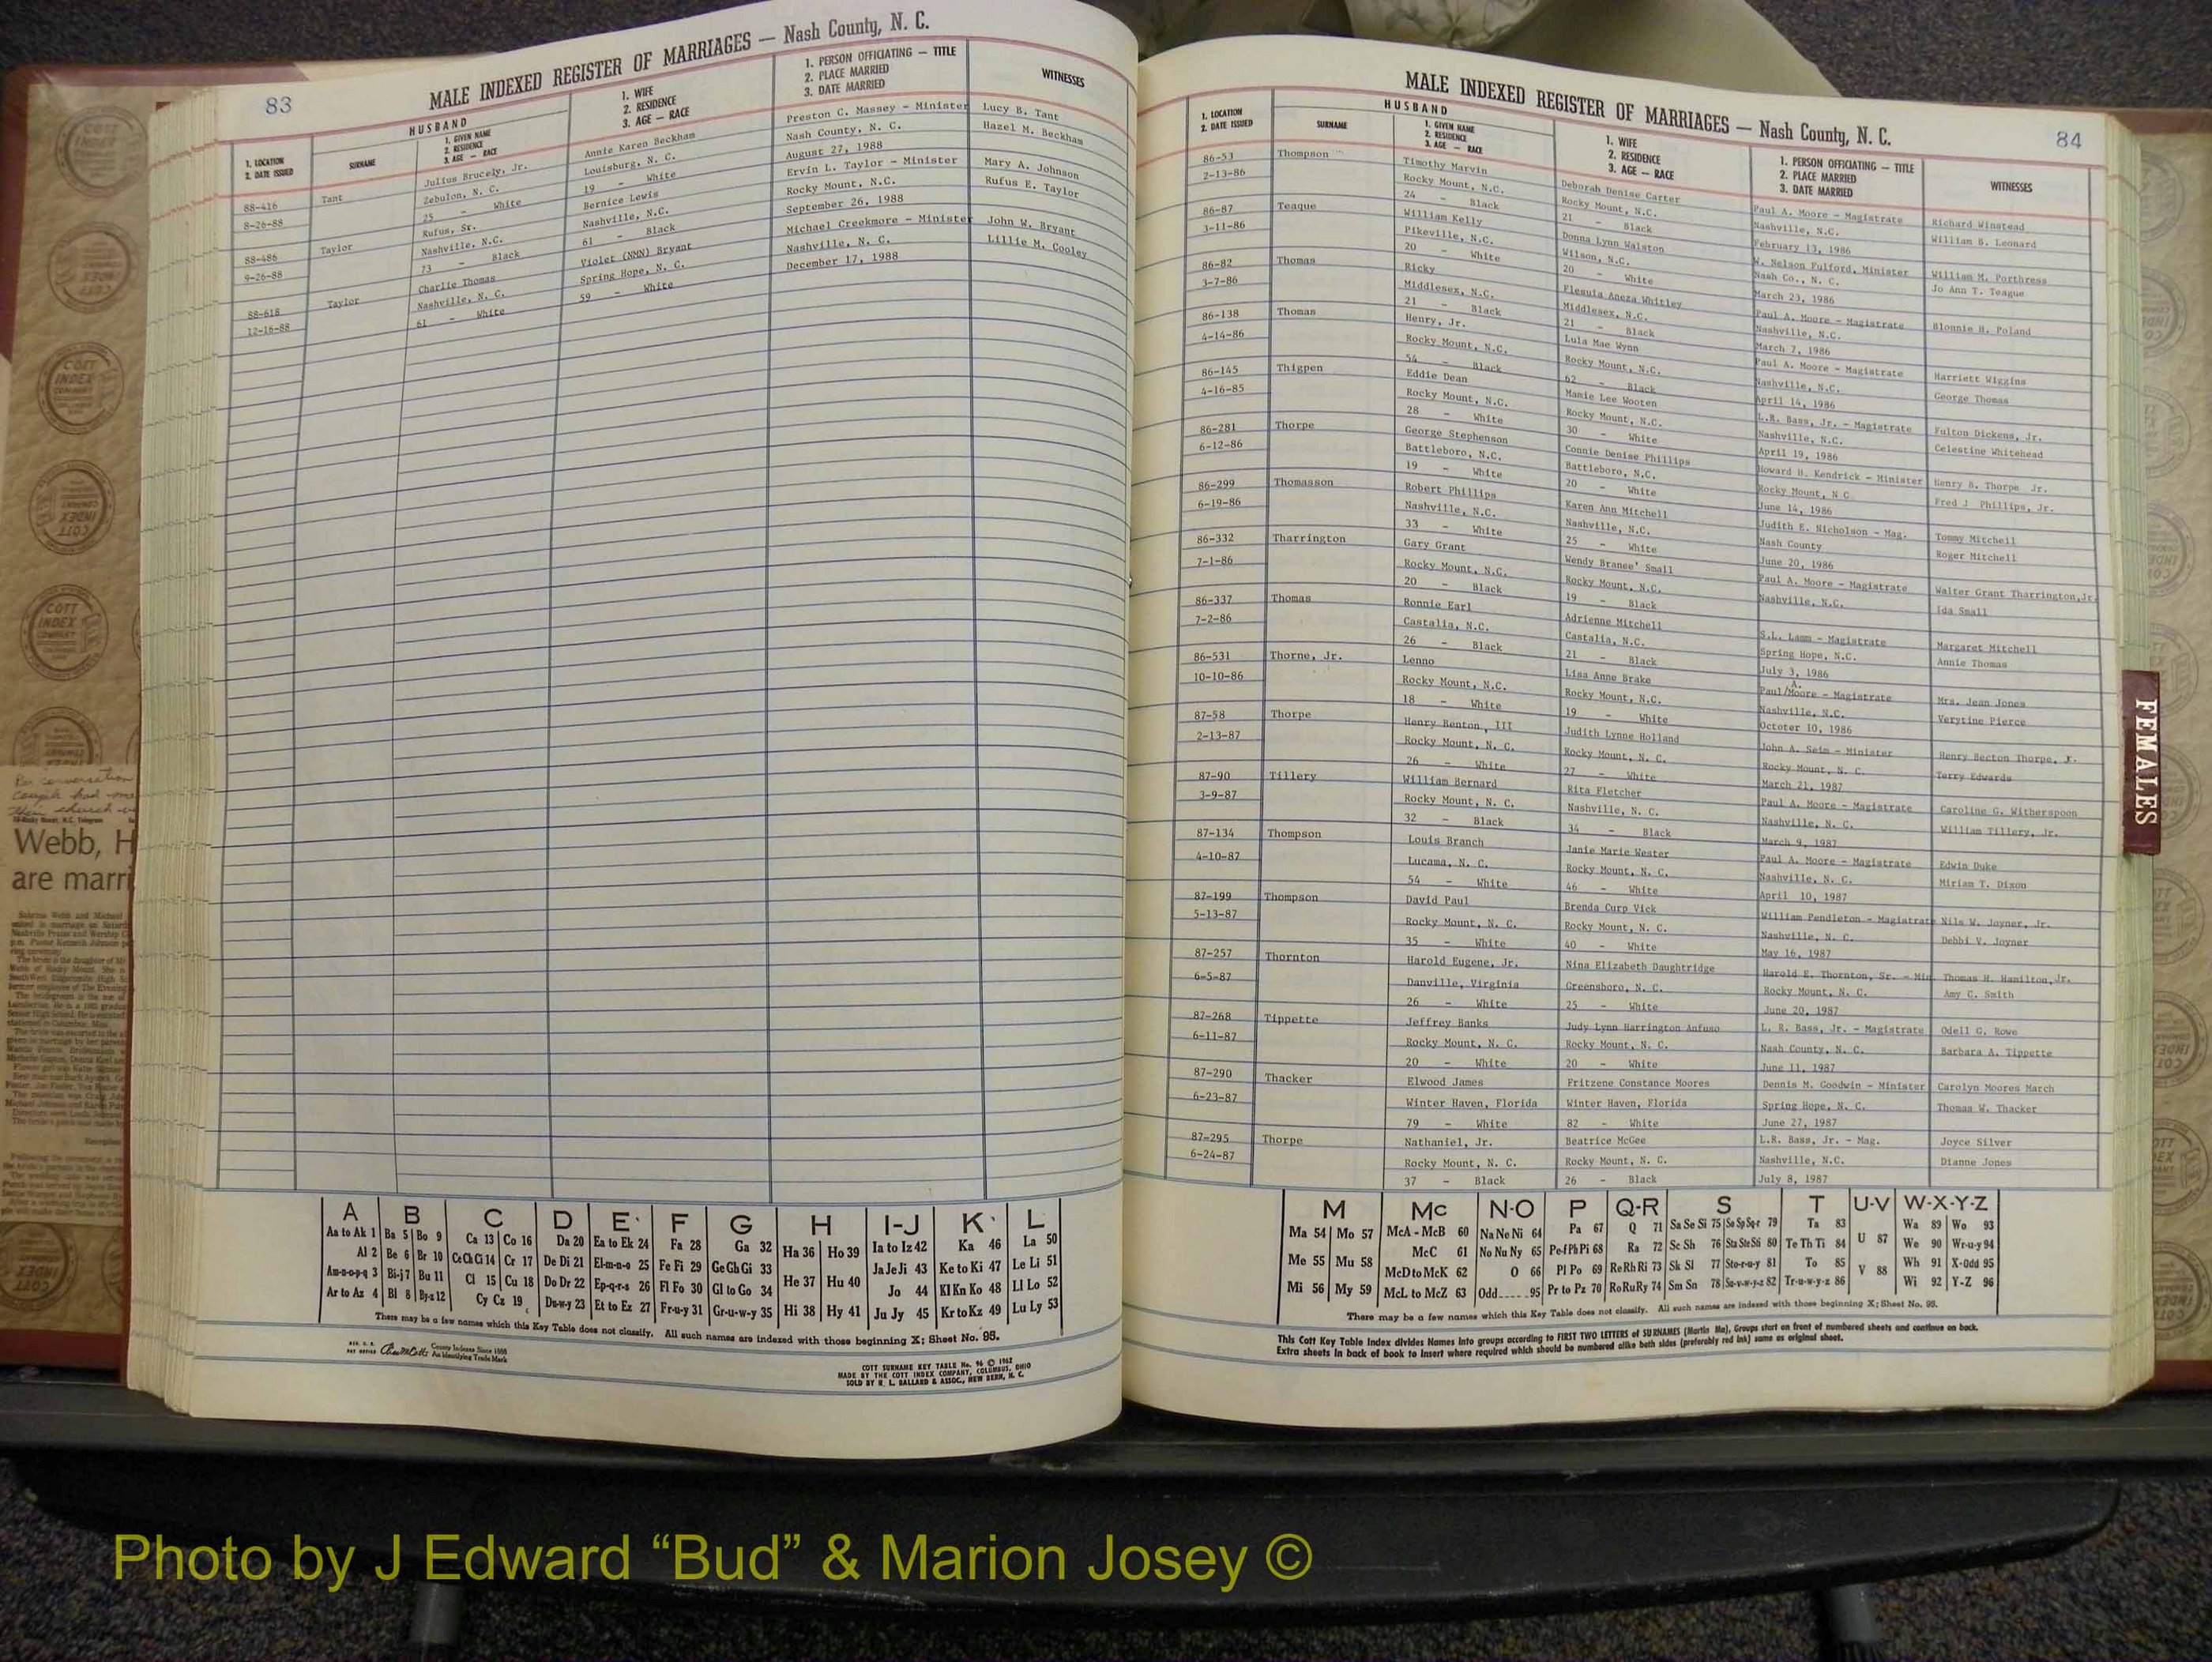 83
MALE INDEXED REGISTER OF MARRIAGES — Nash County, N. C.
1. LOCATION
2. DATE ISSUED
SURNAME
HUSBAND
1. GIVEN NAME
2. RESIDENCE
3. AGE — RACE
1. WIFE
2. RESIDENCE
3. AGE — RACE
1. PERSON OFFICIATING — TITLE
2. PLACE MARRIED
3. DATE MARRIED
WITNESSES
88-416 Tant Julius Brucely, Jr. Annie Karen Beckham Preston C. Massey - Minister Lucy B. Tant
8-26-88 Zebulon, N. C. Louisburg, N. C. Nash County, N. C. Hazel M. Beckham
25 - White 19 - White August 27, 1988
88-486 Taylor Rufus, Sr. Bernice Lewis Ervin L. Taylor - Minister Mary A. Johnson
9-26-88 Nashville, N.C. Nashville, N.C. Rocky Mount, N.C. Rufus E. Taylor
73 - Black 61 - Black September 26, 1988
88-618 Taylor Charlie Thomas Violet (NMN) Bryant Michael Creekmore - Minister John W. Bryant
12-16-88 Nashville, N. C. Spring Hope, N. C. Nashville, N. C. Lillie M. Cooley
61 - White 59 - White December 17, 1988
A B C D E F G H I-J K L
Aa to Ak 1 Ba 5 Bo 9 Ca 13 Co 16 Da 20 Ea to Ek 24 Fa 28 Ga 32 Ha 36 Ho 39 Ia to Iz 42 Ka 46 La 50
Al 2 Be 6 Br 10 Ce Ch Ci 14 Cr 17 De Di 21 El-m-n-o 25 Fe Fi 29 Ge Gh Gi 33 He 37 Hu 40 Ja Je Ji 43 Ke to Ki 47 Le Li 51
Am-n-o-p-q 3 Bi-j 7 Bu 11 Cl 15 Cu 18 Do Dr 22 Ep-q-r-s 26 Fl Fo 30 Gl to Go 34 Jo 44 Kl Kn Ko 48 Ll Lo 52
Ar to Az 4 Bl 8 By-z 12 Cy Cz 19 Du-w-y 23 Et to Ez 27 Fr-u-y 31 Gr-u-w-y 35 Hi 38 Hy 41 Ju Jy 45 Kr to Kz 49 Lu Ly 53
There may be a few names which this Key Table does not classify. All such names are indexed with those beginning X; Sheet No. 95.
County Indexes Since 1888
An Identifying Trade Mark
COTT SURNAME KEY TABLE No. 96 © 1962
MADE BY THE COTT INDEX COMPANY, COLUMBUS, OHIO
SOLD BY R. L. BALLARD & ASSOC., NEW BERN, N. C.
84
MALE INDEXED REGISTER OF MARRIAGES — Nash County, N. C.
1. LOCATION
2. DATE ISSUED
SURNAME
HUSBAND
1. GIVEN NAME
2. RESIDENCE
3. AGE — RACE
1. WIFE
2. RESIDENCE
3. AGE — RACE
1. PERSON OFFICIATING — TITLE
2. PLACE MARRIED
3. DATE MARRIED
WITNESSES
86-53 Thompson Timothy Marvin Deborah Denise Carter Paul A. Moore - Magistrate Richard Winstead
2-13-86 Rocky Mount, N.C. Rocky Mount, N.C. Nashville, N.C. William B. Leonard
24 - Black 21 - Black February 13, 1986
86-87 Teague William Kelly Donna Lynn Walston W. Nelson Fulford, Minister William M. Porthress
3-11-86 Pikeville, N.C. Wilson, N.C. Nash Co., N. C. Jo Ann T. Teague
20 - White 20 - White March 23, 1986
86-82 Thomas Ricky Flesuia Aneza Whitley Paul A. Moore - Magistrate Blonnie H. Poland
3-7-86 Middlesex, N.C. Middlesex, N.C. Nashville, N.C.
21 - Black 21 - Black March 7, 1986
86-138 Thomas Henry, Jr. Lula Mae Wynn Paul A. Moore - Magistrate Harriett Wiggins
4-14-86 Rocky Mount, N.C. Rocky Mount, N.C. Nashville, N.C. George Thomas
54 - Black 62 - Black April 14, 1986
86-145 Thigpen Eddie Dean Mamie Lee Wooten L.R. Bass, Jr. - Magistrate Fulton Dickens, Jr.
4-16-85 Rocky Mount, N.C. Rocky Mount, N.C. Nashville, N.C. Celestine Whitehead
28 - White 30 - White April 19, 1986
86-281 Thorpe George Stephenson Connie Denise Phillips Howard H. Kendrick - Minister Henry B. Thorpe Jr.
6-12-86 Battleboro, N.C. Battleboro, N.C. Rocky Mount, N.C. Fred J Phillips, Jr.
19 - White 20 - White June 14, 1986
86-299 Thomasson Robert Phillips Karen Ann Mitchell Judith E. Nicholson - Mag. Tommy Mitchell
6-19-86 Nashville, N.C. Nashville, N.C. Nash County Roger Mitchell
33 - White 25 - White June 20, 1986
86-332 Tharrington Gary Grant Wendy Branee' Small Paul A. Moore - Magistrate Walter Grant Tharrington,Jr.
7-1-86 Rocky Mount, N.C. Rocky Mount, N.C. Nashville, N.C. Ida Small
20 - Black 19 - Black
86-337 Thomas Ronnie Earl Adrienne Mitchell S.L. Lamm - Magistrate Margaret Mitchell
7-2-86 Castalia, N.C. Castalia, N.C. Spring Hope, N.C. Annie Thomas
26 - Black 21 - Black July 3, 1986
86-531 Thorne, Jr. Lenno Lisa Anne Brake Paul/A. Moore - Magistrate Mrs. Jean Jones
10-10-86 Rocky Mount, N.C. Rocky Mount, N.C. Nashville, N.C. Verytine Pierce
18 - White 19 - White Octoter 10, 1986
87-58 Thorpe Henry Benton, III Judith Lynne Holland John A. Seim - Minister Henry Becton Thorpe, Jr.
2-13-87 Rocky Mount, N. C. Rocky Mount, N. C. Rocky Mount, N. C. Terry Edwards
26 - White 27 - White March 21, 1987
87-90 Tillery William Bernard Rita Fletcher Paul A. Moore - Magistrate Caroline G. Witherspoon
3-9-87 Rocky Mount, N. C. Nashville, N. C. Nashville, N. C. William Tillery, Jr.
32 - Black 34 - Black March 9, 1987
87-134 Thompson Louis Branch Janie Marie Wester Paul A. Moore - Magistrate Edwin Duke
4-10-87 Lucama, N. C. Rocky Mount, N. C. Nashville, N. C. Miriam T. Dixon
54 - White 46 - White April 10, 1987
87-199 Thompson David Paul Brenda Curp Vick William Pendleton - Magistrate Nils W. Joyner, Jr.
5-13-87 Rocky Mount, N. C. Rocky Mount, N. C. Nashville, N. C. Debbi V. Joyner
35 - White 40 - White May 16, 1987
87-257 Thornton Harold Eugene, Jr. Nina Elizabeth Daughtridge Harold E. Thornton, Sr. - Min. Thomas H. Hamilton,Jr.
6-5-87 Danville, Virginia Greensboro, N. C. Rocky Mount, N. C. Amy C. Smith
26 - White 25 - White June 20, 1987
87-268 Tippette Jeffrey Banks Judy Lynn Harrington Anfuso L. R. Bass, Jr. - Magistrate Odell G. Rowe
6-11-87 Rocky Mount, N. C. Rocky Mount, N. C. Nash County, N. C. Barbara A. Tippette
20 - White 20 - White June 11, 1987
87-290 Thacker Elwood James Fritzene Constance Moores Dennis M. Goodwin - Minister Carolyn Moores March
6-23-87 Winter Haven, Florida Winter Haven, Florida Spring Hope, N. C. Thomas W. Thacker
79 - White 82 - White June 27, 1987
87-295 Thorpe Nathaniel, Jr. Beatrice McGee L.R. Bass, Jr. - Mag. Joyce Silver
6-24-87 Rocky Mount, N. C. Rocky Mount, N. C. Nashville, N.C. Dianne Jones
37 - Black 26 - Black July 8, 1987
M Mc N-O P Q-R S T U-V W-X-Y-Z
Ma 54 Mo 57 McA - McB 60 Na Ne Ni 64 Pa 67 Q 71 Sa Se Si 75 So Sp Sq-r 79 Ta 83 U 87 Wa 89 Wo 93
Me 55 Mu 58 McC 61 No Nu Ny 65 Pe-f Ph Pi 68 Ra 72 Sc Sh 76 Sta Ste Sti 80 Te Th Ti 84 We 90 Wr-u-y 94
McD to McK 62 O 66 Pl Po 69 Re Rh Ri 73 Sk Sl 77 Sto-r-u-y 81 To 85 V 88 Wh 91 X-Odd 95
Mi 56 My 59 McL to McZ 63 Odd 95 Pr to Pz 70 Ro Ru Ry 74 Sm Sn 78 Su-v-w-y-z 82 Tr-u-w-y-z 86 Wi 92 Y-Z 96
There may be a few names which this Key Table does not classify. All such names are indexed with those beginning X; Sheet No. 95.
This Cott Key Table Index divides Names into groups according to FIRST TWO LETTERS of SURNAMES (Martin Ma), Groups start on front of numbered sheets and continue on back.
Extra sheets in back of book to insert where required which should be numbered alike both sides (preferably red ink) same as original sheet.
FEMALES
COTT INDEX COMPANY
Webb, H
are marri
Photo by J Edward “Bud” & Marion Josey ©